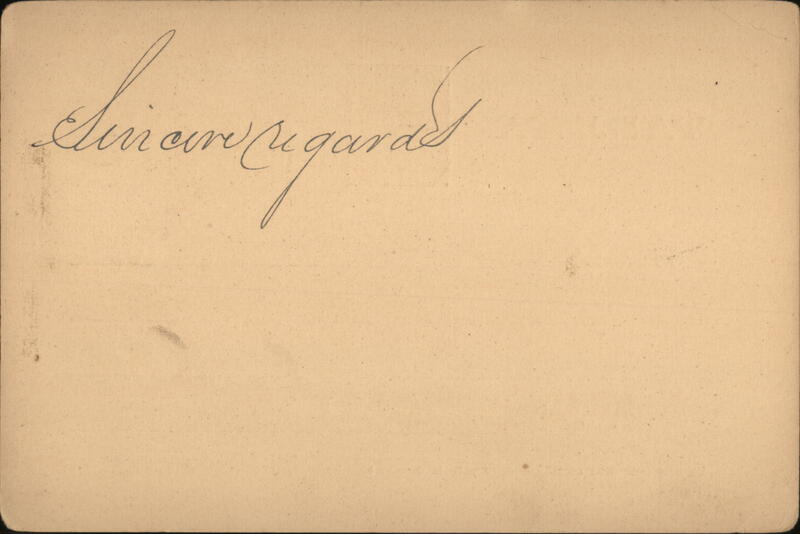 Sincere regards